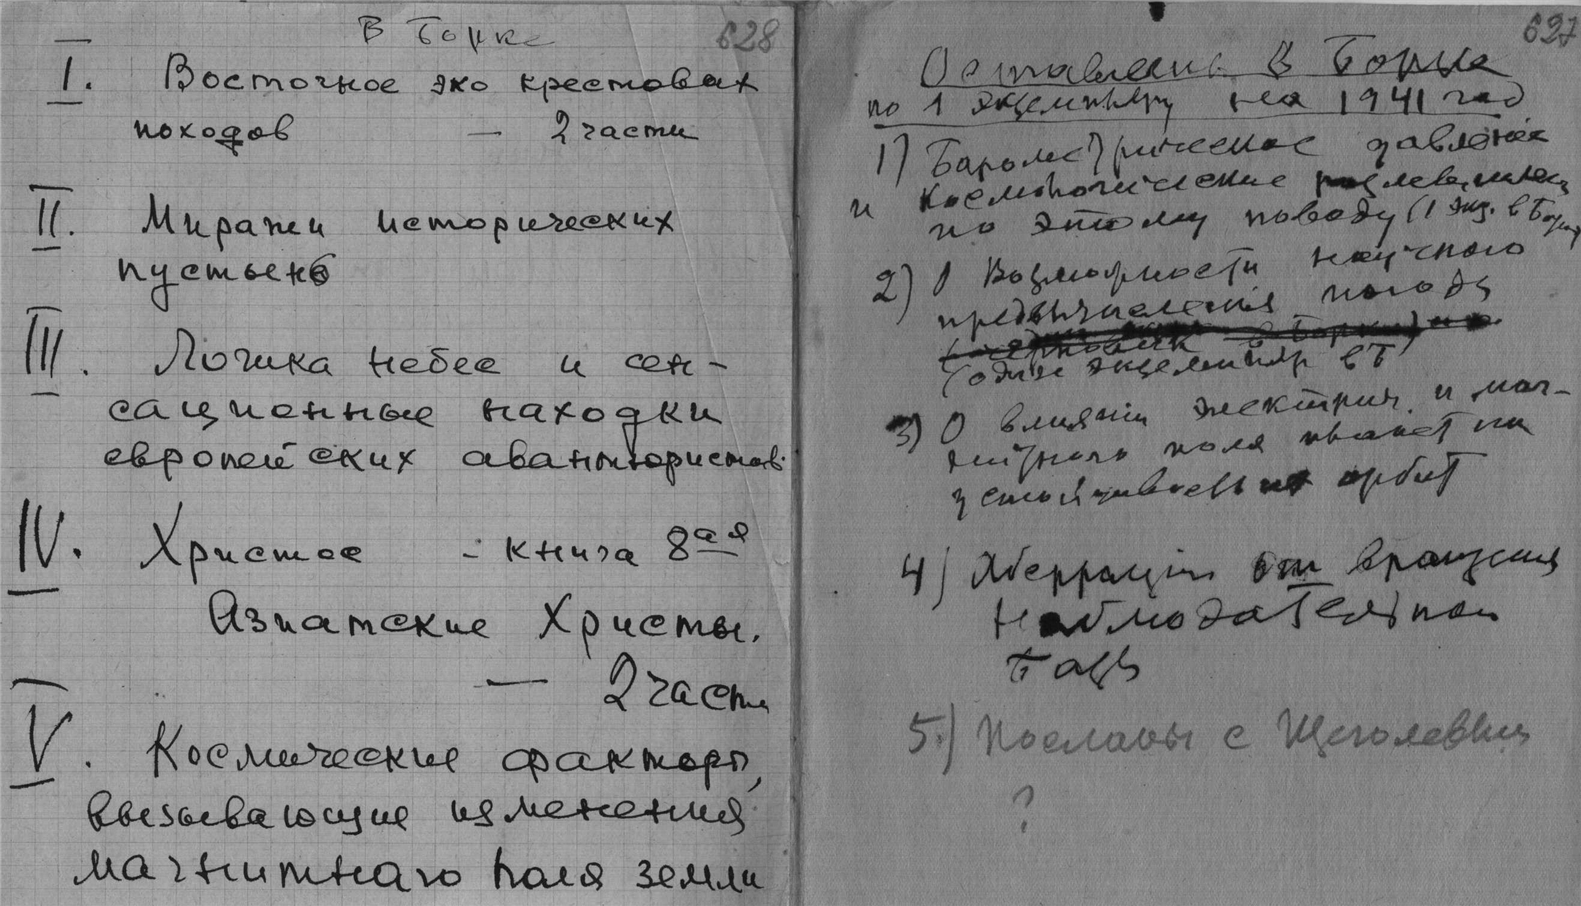 В Борке
628
I. Восточное эхо крестовых
походов — 2 части
II. Миражи исторических
пустынь
III. Логика небес и сен-
сационные находки
европейских авантюристов.
IV. Христос - книга 8ая
Азиатские Христы.
— 2 части
V. Космические факторы,
вызывающие изменения
магнитнаго поля земли
627
Оставлены в Борке
по 1 экземпляру на 1941 год
1) Барометрическое давление
и космологические
по этому поводу (1 экз. в Борке
2) О возможности научного
предвычисления погоды
(черновик в Борке)
(один экземпляр в Б
3) О влиянии электрич. и маг-
нитного поля планет на
устойчивость орбит
4) Аберрация от вращения
наблюдательной
базы
5.) Посланы с Щеголевым
?